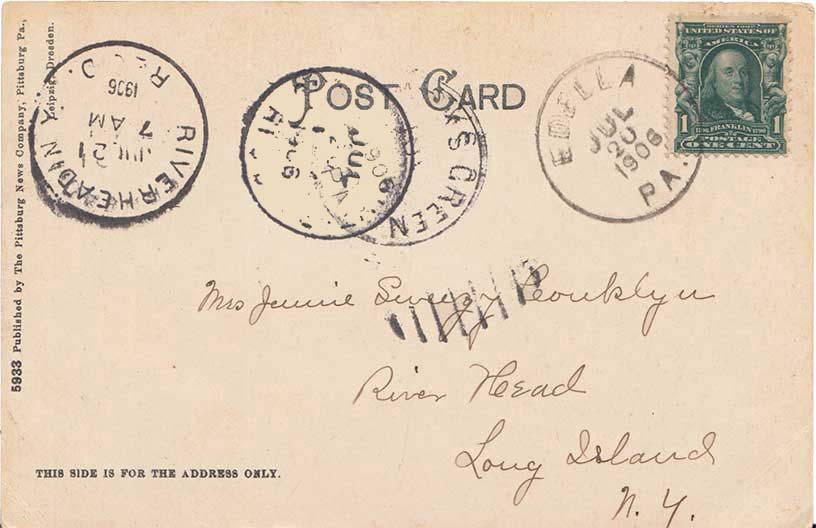 5933 Published by The Pittsburg News Company, Pittsburg Pa.,
Leipzig, Dresden.
POST CARD
RIVERHEAD N.Y.
JUL 21
7 AM
1906
REC'D
JUL
1906
GREEN
EDELLA
JUL
20
1906
PA.
SERIES 1902
UNITED STATES OF
AMERICA
1 FRANKLIN 1
POSTAGE
ONE CENT
Mrs Jennie Swezy Conklyn
River Head
Long Island
N.Y.
THIS SIDE IS FOR THE ADDRESS ONLY.